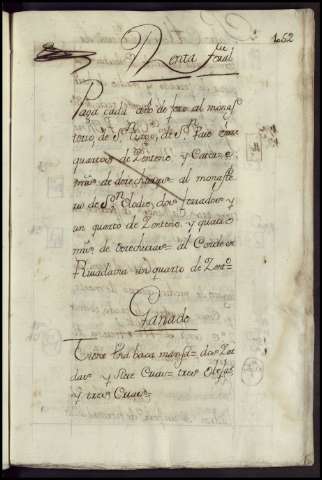 1052
Renta frual
Paga cada año de foro al monas
terio, de Sn Payo, de Sn Payo
quartos de Zenteno y
mrs de derechuras al monaste
rio de Sn Clodio, dos ferrados y
un quarto de Zenteno, y quatro
mrs de derechuras al Conde de
Rivadavia un quarto de Zento
Ganado
Tiene Una baca mansa= dos Zer
das y siete Crias= tres Obejas
y tres Crias=